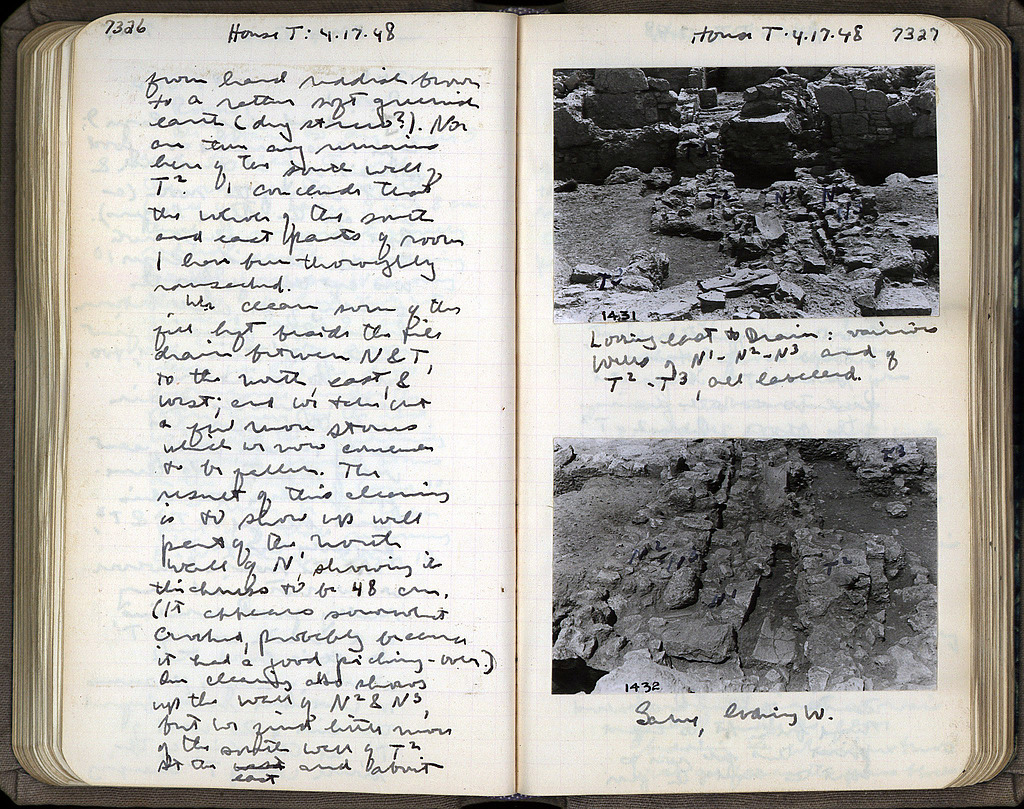 7326
House T: 4.17.48
from hard reddish brown
to a rather soft greenish
earth (dug stereo?). Nor
are there any remains
here of the south wall of
T². I conclude that
the whole of the south
and east parts of room
1 have been thoroughly
ransacked.
We clean some of the
fill left beside the
drain between N & T,
to the north, east, &
west; and we take out
a few more stones
which we now conceive
to be fallen. The
result of this cleaning
is to show up well
part of the north
wall of N, showing its
thickness to be 48 cm.
(It appears somewhat
crooked, probably because
it had a good picking-over.)
Our cleaning also shows
up the wall of N² & N³,
but we find little more
of the south wall of T²
at the west and about
east
House T 4.17.48
7327
T²
1431
Looking east to Drain: various
walls of N¹-N²-N³ and of
T²-T³, all labelled.
T²
1432
Same, looking W.